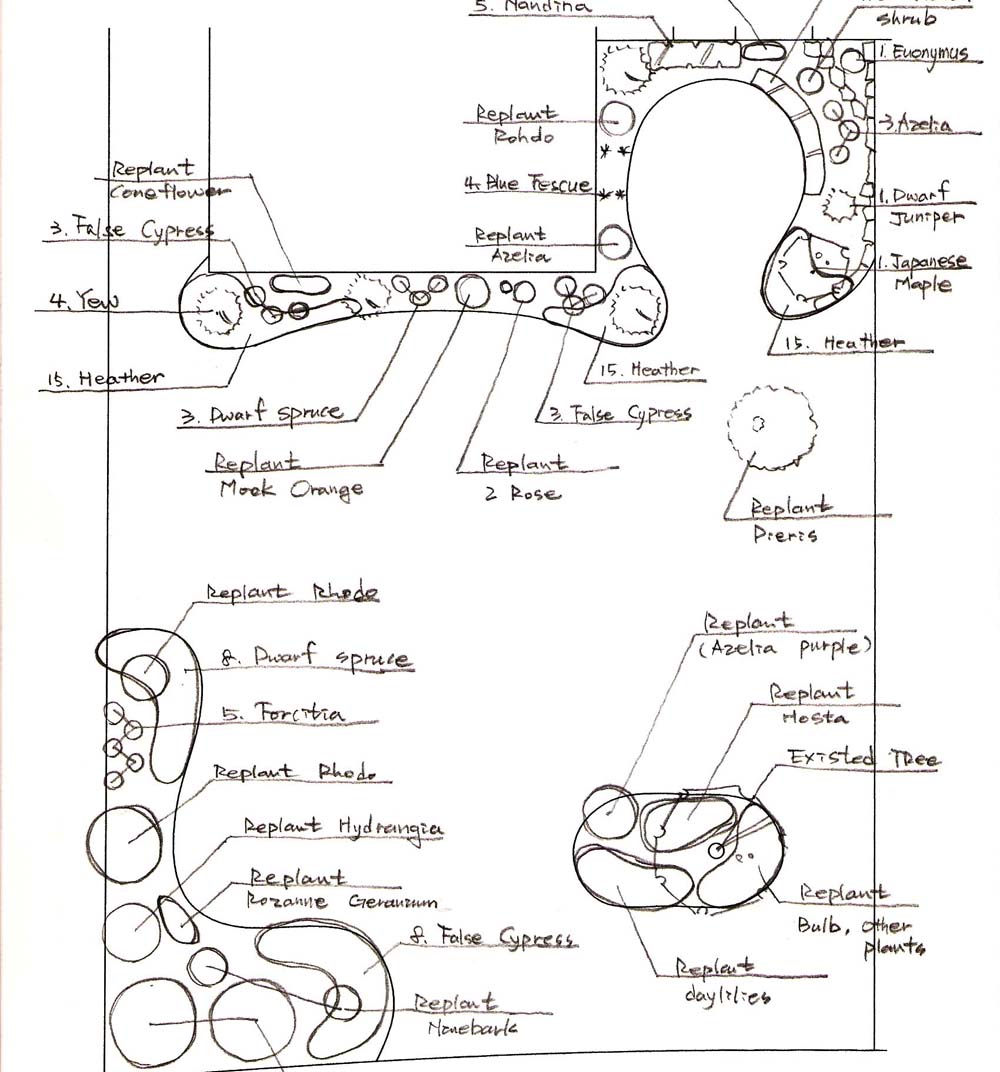 5. Nandina
shrub
1. Euonymus
Replant
Rohdo
3. Azelia
Replant
Coneflower
4. Blue Fescue
1. Dwarf
Juniper
3. False Cypress
Replant
Azelia
1. Japanese
Maple
4. Yew
15. Heather
15. Heather
15. Heather
3. Dwarf spruce
3. False Cypress
Replant
Mock Orange
Replant
2 Rose
Replant
Pieris
Replant Rhodo
Replant
(Azelia purple)
8. Dwarf spruce
Replant
Hosta
5. Forcitia
Existed Tree
Replant Rhodo
Replant Hydrangia
Replant
Rozanne Geranium
Replant
Bulb, other
plants
8. False Cypress
Replant
daylilies
Replant
Ninebark